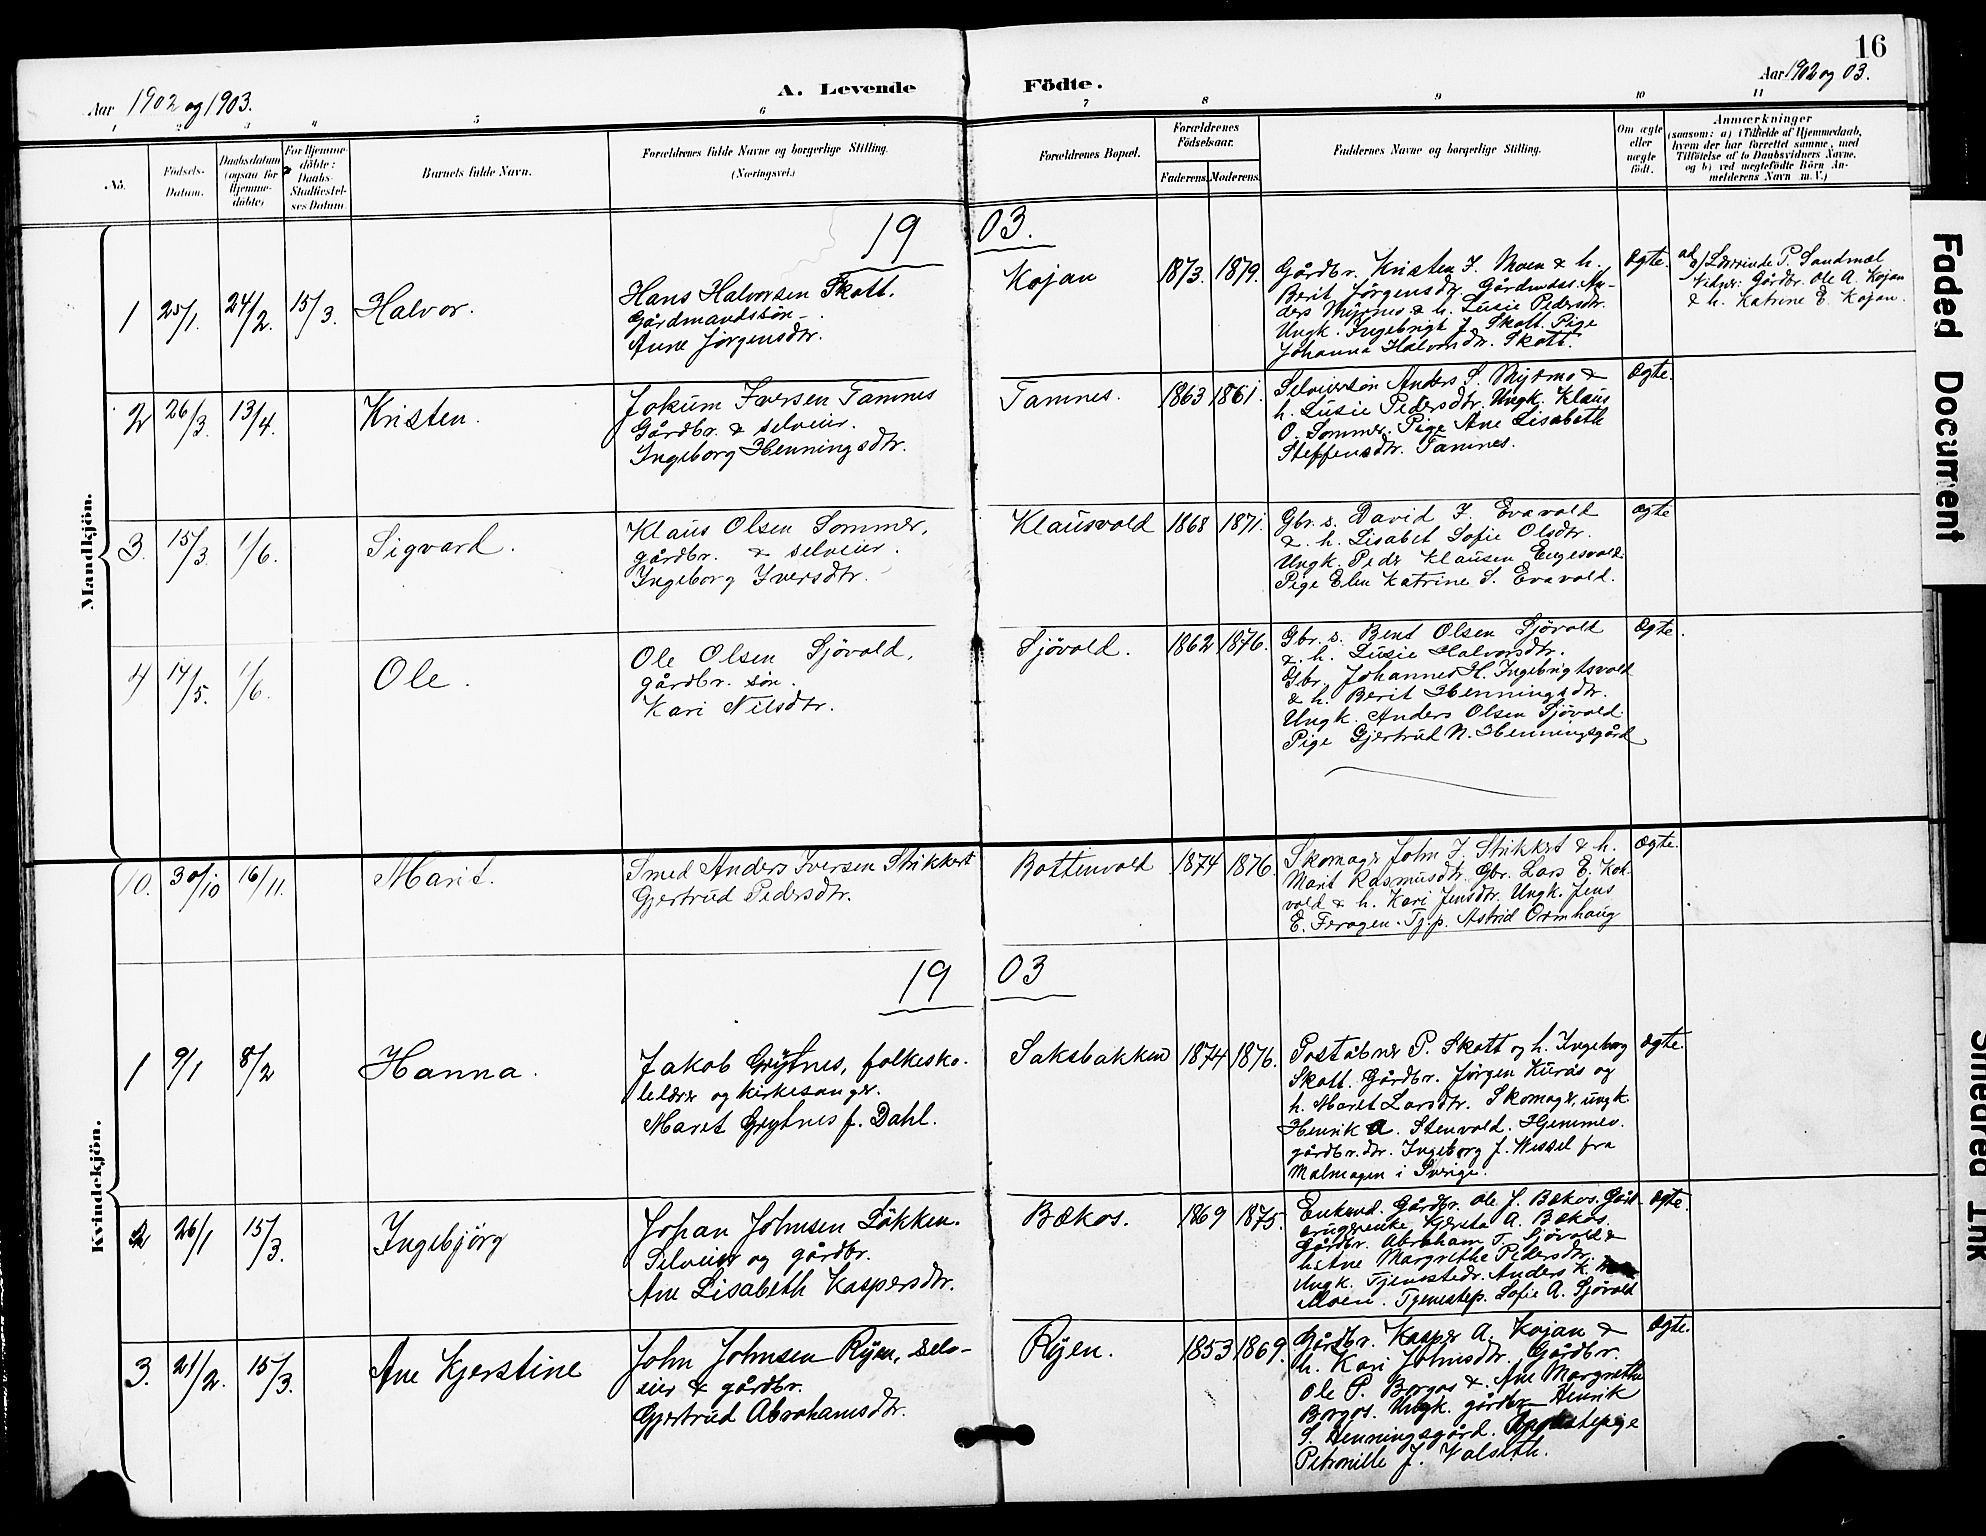 16
Aar 1902 og 1903.
A. Levende Födte.
Aar 1902 og 03.
1 2 3 4 5 6 7 8 9 10 11
No.
Födsels-
Datum.
Daabsdatum
(ogsaa for
Hjemme-
döbte)
For Hjemme-
döbte:
Daabs-
Stadfæstel-
ses Datum.
Barnets fulde Navn.
Forældrenes fulde Navne og borgerlige Stilling.
(Næringsvei.)
Forældrenes Bopæl.
Forældrenes
Födselsaar.
Faderens. Moderens.
Faddernes Navne og borgerlige Stilling.
Om ægte
eller
uægte
födt.
Anmærkninger
(saasom: a) i Tilfælde af Hjemmedaab,
hvem der har forrettet samme, med
Tilföielse af to Daabsvidners Navne,
og b) ved uægtefödte Börn An-
melderens Navn m. V.)
Mandkjön.
1903.
1 25/1. 24/2. 15/3. Halvor.
Hans Halvorsen Skott.
Gårdmandssön -.
Anne Jörgensdtr.
Kojan 1873. 1879.
Gårdbr. Kristen J. Moen & h.
Berit Jörgensdtr. Gårdmdss. An-
ders Myrmo & h. Lusie Pedersdtr.
Ungk. Ingebrigt J. Skott. Pige
Johanna Halvorsdtr. Skott.
Ægte.
ad a) Lærerinde P. Sandmæl
Vidner: Gårdbr. Ole A. Kojan
& h. Katrine E. Kojan.
2 26/3. 13/4. Kristen.
Jokum Iversen Tamnes
Gårdbr. & selveier.
Ingeborg Henningsdtr.
Tamnes. 1863 1861.
Selveiersön Anders S. Myrmo &
h. Lusie Pedersdtr. Ungk. Klaus
O. Sommer. Pige Ane Lisabeth
Steffensdtr. Tamnes.
Ægte.
3. 15/3. 1/6. Sigvard.
Klaus Olsen Sommer,
gårdbr. & selveier.
Ingeborg Iversdtr.
Klausvold 1868 1871.
Gbr. s. David J. Evavold
& h. Lisabet Sofie Olsdtr.
Ungk. Peder Klausen Engesvold.
Pige Elen Katrine S. Evavold.
Ægte
4 14/5. 1/6. Ole.
Ole Olsen Sjövold,
gårdbr. sön.
Kari Nilsdtr.
Sjövold. 1862 1876.
Gbr. s. Bent Olsen Sjövold
& h. Lusie Halvorsdtr.
Gbr. Johannes H. Ingebrigtsvold
& h. Berit Henningsdtr.
Ungk. Anders Olsen Sjövold.
Pige Gjertrud N. Henningsgård
Ægte.
Kvindekjön.
10. 30/10 16/11. Marit.
Smed Anders Iversen Strikkert
Gjertrud Pedersdtr.
Bottenvold 1874 1876.
Skomager John J. Strikkert & h.
Marit Rasmusdtr. Gbr. Lars E. Kok-
vold & h. Kari Jensdtr. Ungk. Jens
E. Feragen. Tj.p. Astrid Ormhaug
Ægte.
1903
1 9/1 8/2 Hanna.
Jakob Grytnes, folkesko-
lelærer og kirkesanger.
Maret Grytnes f. Dahl.
Saksbakken 1874 1876.
Poståbner P. Skott og h. Ingeborg
Skott. Gårdbr. Jörgen Kurås og
h. Maret Larsdtr. Skomager, ungk.
Henrik A. Stenvold. Hjemmev.
gårdbr.dtr. Ingeborg J. Wessel fra
Malmagen i Sverige.
Ægte.
2 26/1 15/3. Ingebjörg
Johan Johnsen Lökken.
Selveier og gårdbr.
Ane Lisabeth Kaspersdtr.
Bækos. 1869 1875.
Enkemd. Gårdbr. Ole J. Bækos. Gård-
brugerenke Kjersta A. Bækos.
Gårdbr. Abraham T. Sjövold &
h. Ane Margrethe Pedersdtr.
Ungk. Tjenestedr. Anders K.
Moen. Tjenestep. Sofie A. Sjövold
Ægte.
3. 21/2. 15/3. Ane Kjerstine
John Johnsen Ryen, selv-
eier & gårdbr.
Gjertrud Abrahamsdtr.
Ryen. 1853 1869.
Gårdbr. Kasper A. Kojan &
h. Kari Johnsdtr. Gårdbr.
Ole P. Borgos & Ane Margrethe
Borgos. Ungk. gårdbr. Henrik
S. Henningsgård. Tjenestepige
Petronille J. Valseth.
Ægte.
Faded Document
Smeared Ink